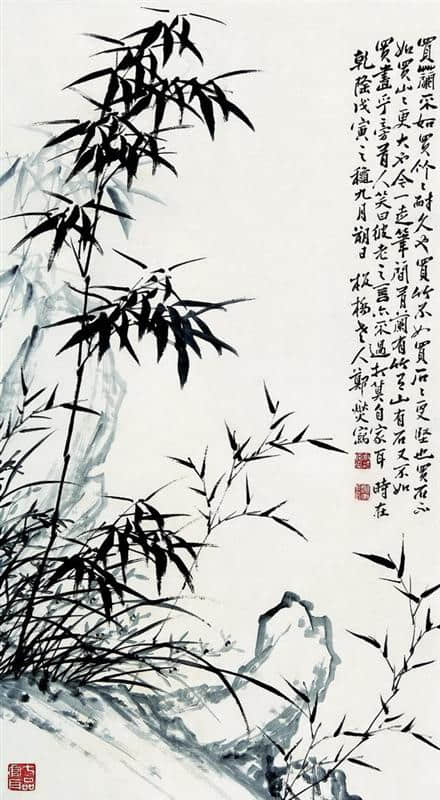 買蘭不如買竹〻耐久也買竹不如買石〻更堅也買石不
如買山〻更大也今一走筆間有蘭有竹有山有石又不如
買畫乎旁有人笑曰彼老之言亦不過打算自家耳時在
乾隆戊寅之穐九月朔日板橋老人鄭燮寫
七品官耳